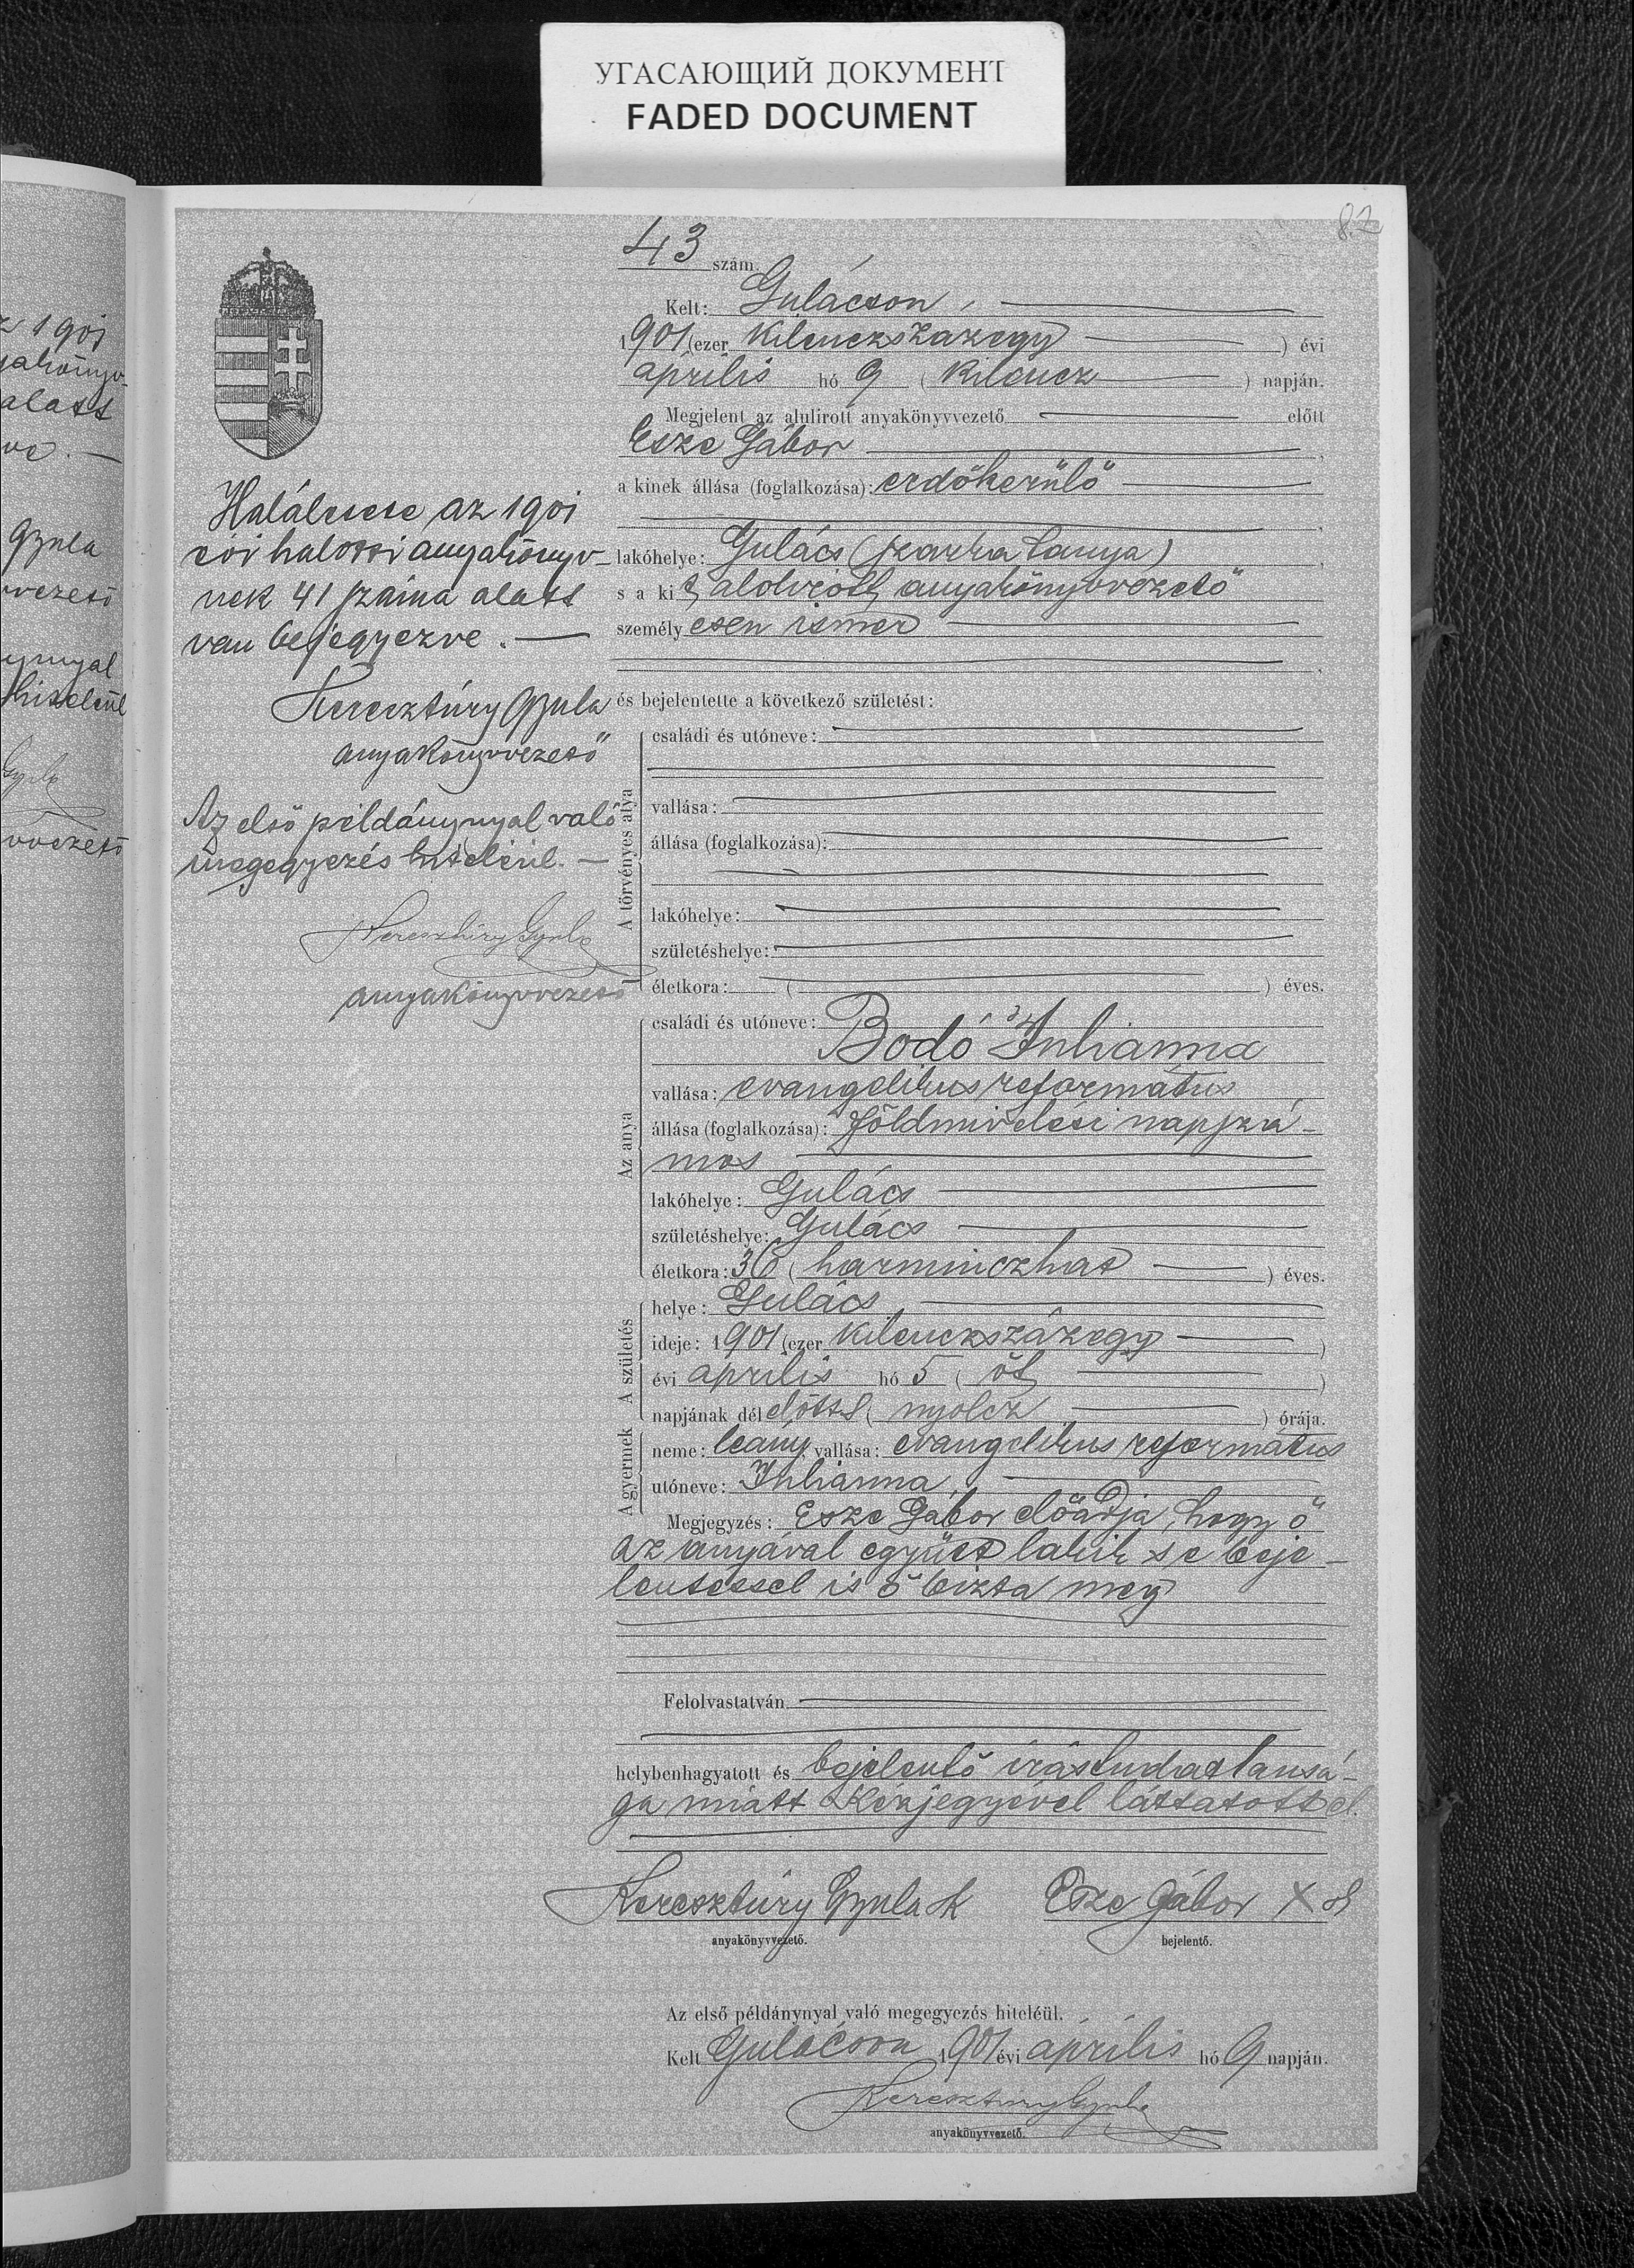 УГАСАЮЩИЙ ДОКУМЕНТ
FADED DOCUMENT
82
43 szám
Kelt: Gulácson,
1901 (ezer kilenczszazegy) évi
április hó 9 (kilencz) napján.
Megjelent az alulirott anyakönyvvezető előtt
Esze Gábor
a kinek állása (foglalkozása): erdőkerülő
lakóhelye: Gulács (szarka tanya)
s a kit alolvirott anyakönyvvezető
személyesen ismer
és bejelentette a következő születést:
A törvényes atya
családi és utóneve:
vallása:
állása (foglalkozása):
lakóhelye:
születéshelye:
életkora: ( ) éves.
Az anya
családi és utóneve:
Bodó Julianna
vallása: evangelikus református
állása (foglalkozása): földmivelési napszá-
mos
lakóhelye: Gulács
születéshelye: Gulács
életkora: 36 (harminczhat) éves.
A születés
helye: Gulács
ideje: 1901 (ezer kilenczszázegy)
évi április hó 5 (öt)
napjának délelőtt 8 (nyolcz) órája.
A gyermek
neme: leány, vallása: evangelikus református
utóneve: Julianna,
Megjegyzés: Esze Gábor előadja, hogy ő
az anyával együtt lakik s e beje-
lentéssel is ő bizta meg
Felolvastatván
helybenhagyatott és bejelentő irástudatlansá-
ga miatt kézjegyével láttatott el.
Keresztúry Gyula Esze Gábor X
anyakönyvvezető. bejelentő.
Az első példánynyal való megegyezés hiteléül.
Kelt Gulácson 1901 évi április hó 9 napján.
Keresztúry Gyula
anyakönyvvezető.
Halálesete az 1901
évi halotti anyakönyv-
nek 41 száma alatt
van bejegyezve.
Keresztúry Gyula
anyakönyvvezető
Az első példánynyal való
megegyezés hiteléül.
Keresztúry Gyula
anyakönyvvezető
1901
alatt
Gyula